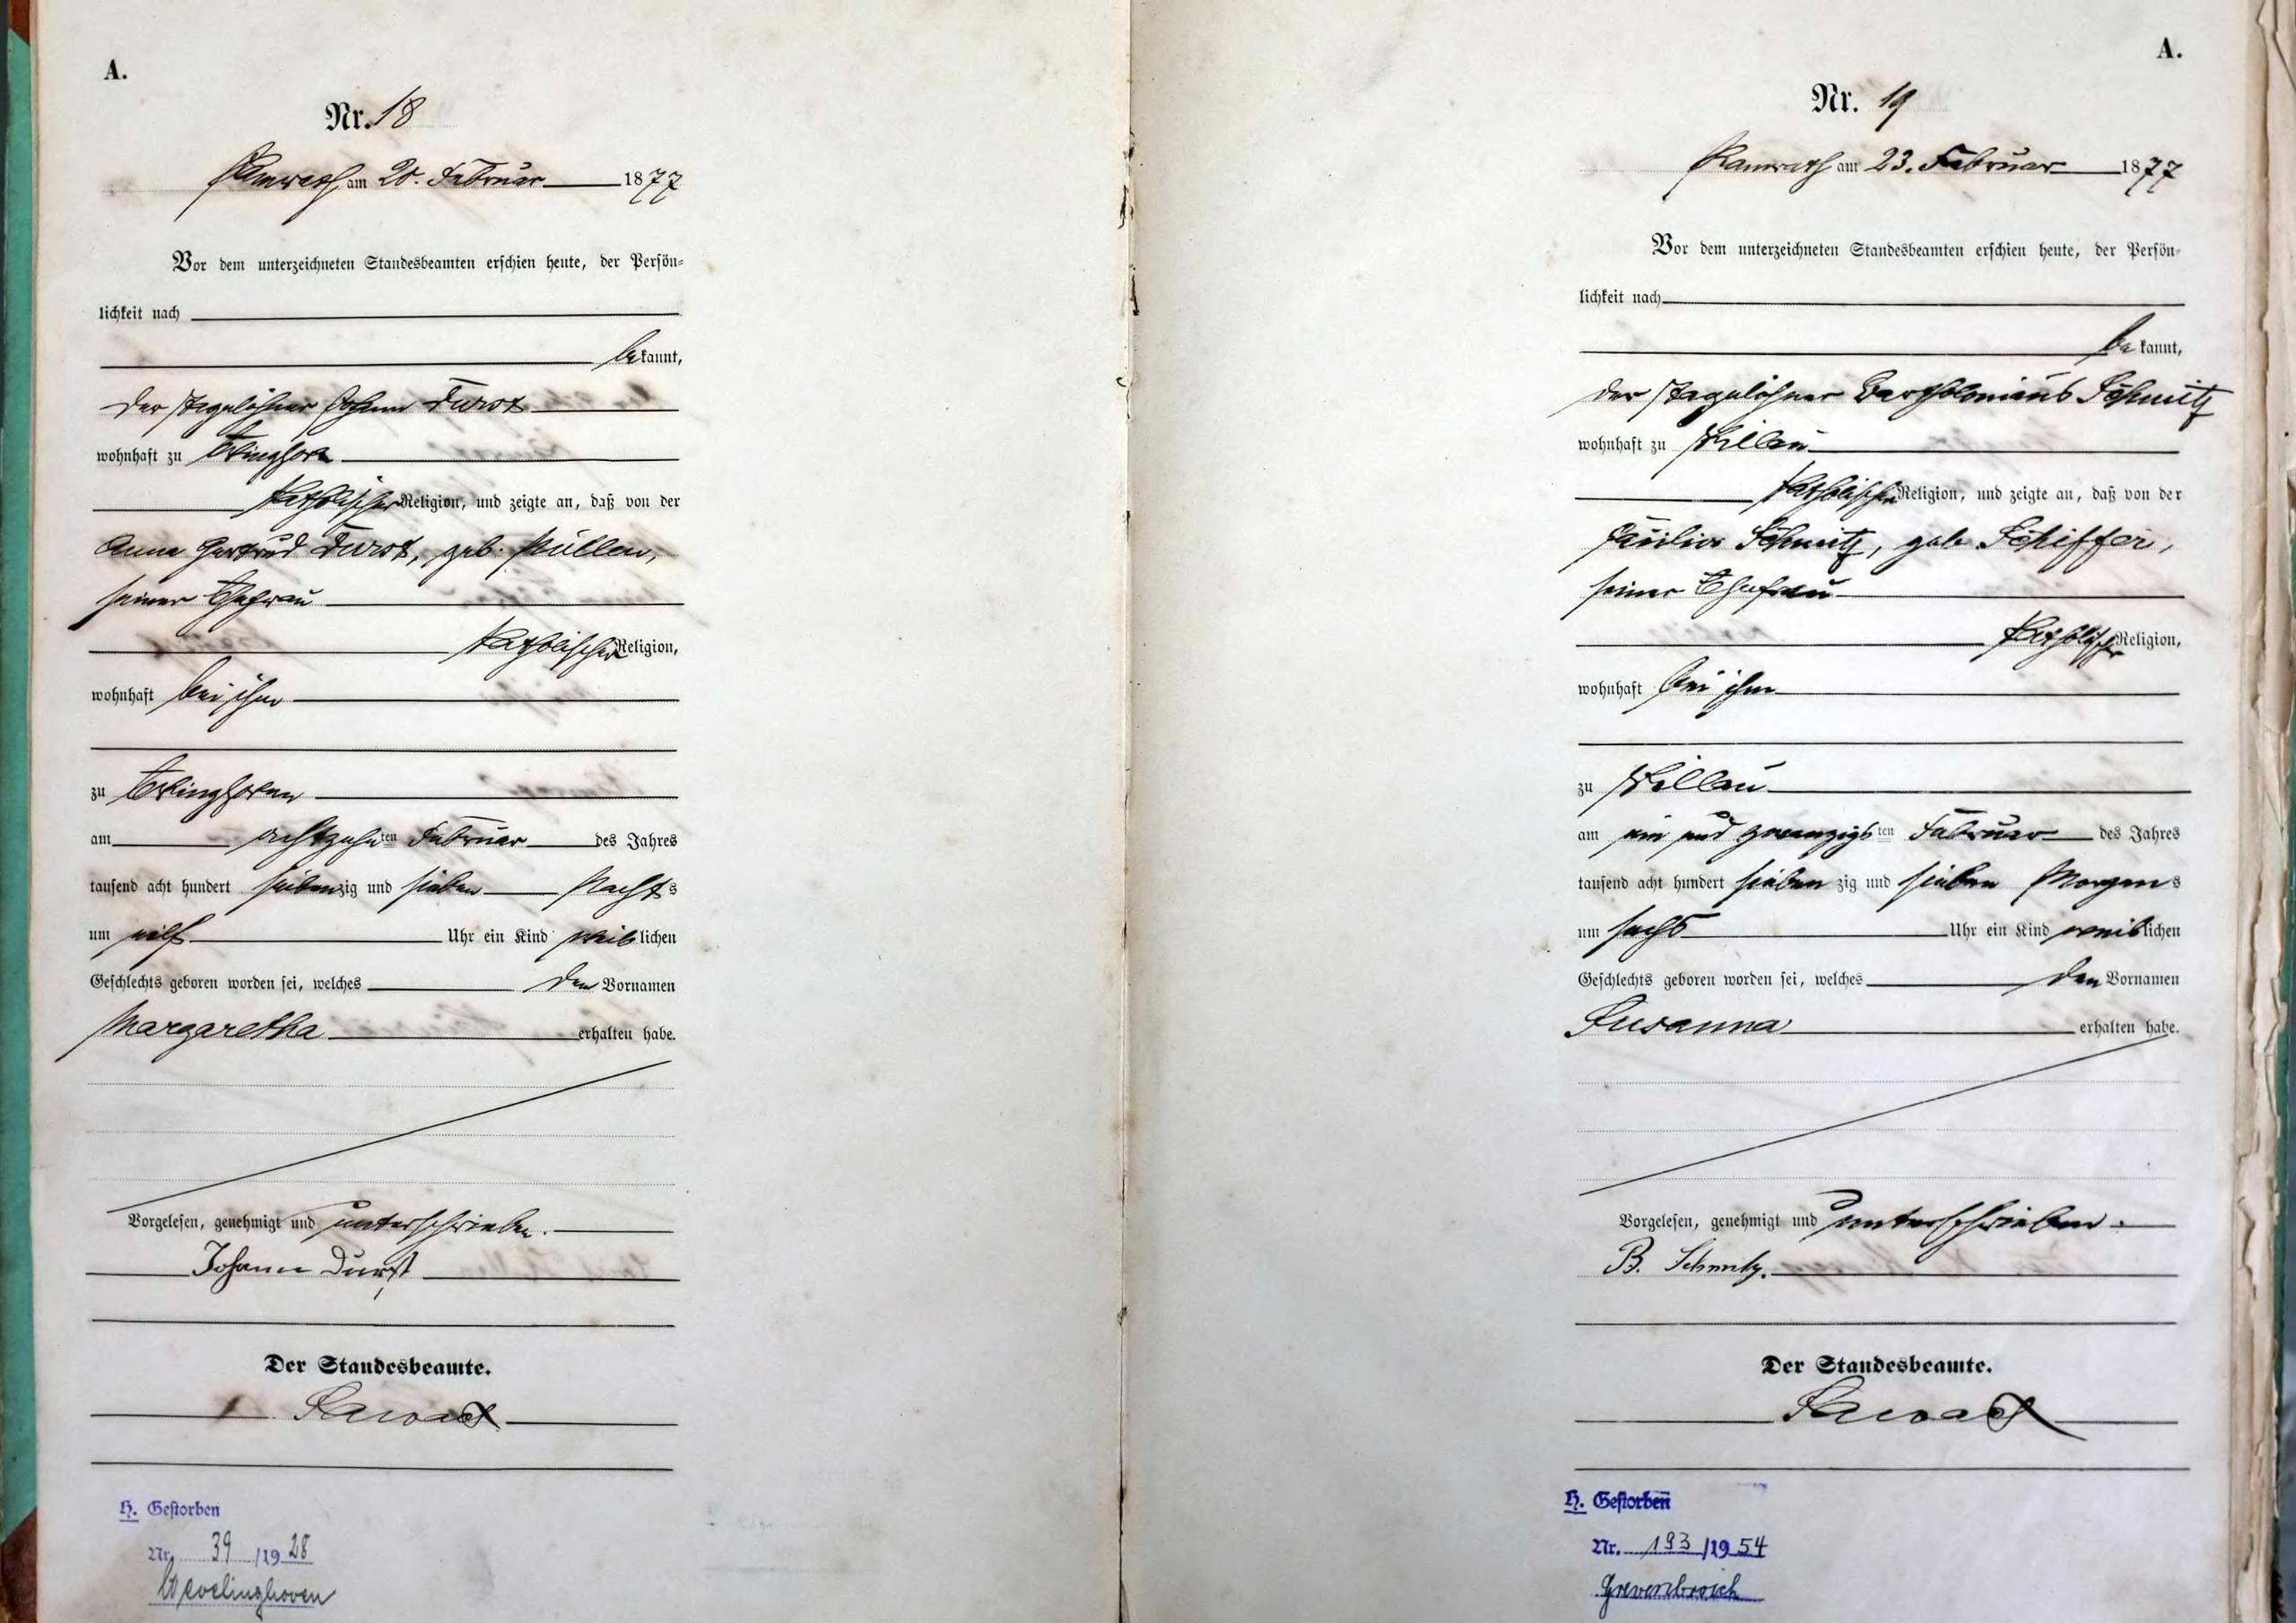 A.
Nr. 18
am 20. Februar 1877
Vor dem unterzeichneten Standesbeamten erschien heute, der Persön-
lichkeit nach
bekannt,
der Tagelöhner Johann Durst
wohnhaft zu
katholischer Religion, und zeigte an, daß von der
Anna Gertrud Durst, geb. Müllen,
seiner Ehefrau
katholischer Religion,
wohnhaft bei ihm
zu
am achtzehnten Februar des Jahres
tausend acht hundert siebenzig und sieben Nachts
um elf Uhr ein Kind weiblichen
Geschlechts geboren worden sei, welches den Vornamen
Margaretha erhalten habe.
Vorgelesen, genehmigt und unterschrieben.
Johann Durst
Der Standesbeamte.
H. Gestorben
Nr. 39 /1928
Wevelinghoven
A.
Nr. 19
am 23. Februar 1877
Vor dem unterzeichneten Standesbeamten erschien heute, der Persön-
lichkeit nach
bekannt,
der Tagelöhner Bartholomäus Schmitz
wohnhaft zu
katholischer Religion, und zeigte an, daß von der
Schmitz, geb. Schiffer,
seiner Ehefrau
katholischer Religion,
wohnhaft bei ihm
zu
am ein und zwanzigsten Februar des Jahres
tausend acht hundert siebenzig und sieben Morgens
um sechs Uhr ein Kind weiblichen
Geschlechts geboren worden sei, welches den Vornamen
Susanna erhalten habe.
Vorgelesen, genehmigt und unterschrieben.
B. Schmitz.
Der Standesbeamte.
H. Gestorben
Nr. 193 /1954
Grevenbroich